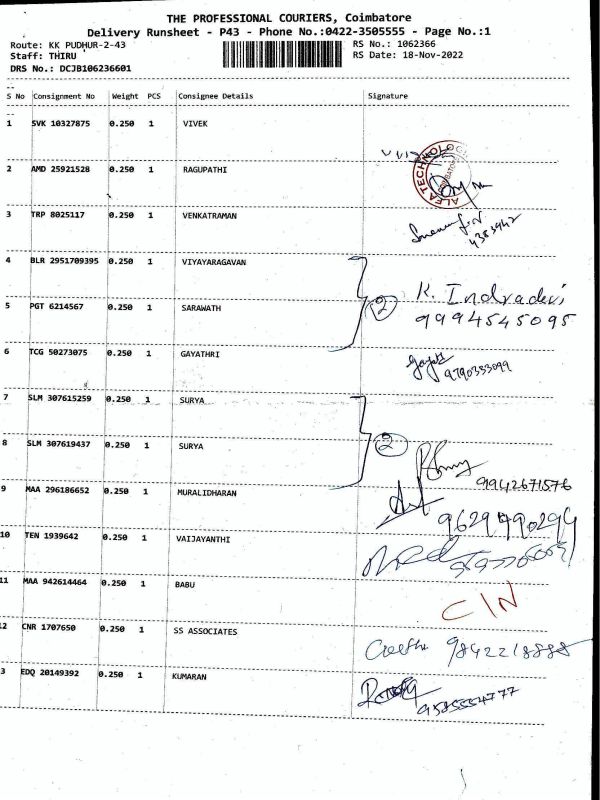 THE PROFESSIONAL COURIERS, Coimbatore
Delivery Runsheet - P43 - Phone No.:0422-3505555 - Page No.:1
Route: KK PUDHUR-2-43 RS No.: 1062366
Staff: THIRU RS Date: 18-Nov-2022
DRS No.: DCJB106236601
S No Consignment No Weight PCS Consignee Details Signature
1 SVK 10327875 0.250 1 VIVEK
ALFA TECHNOLOG
2 AMD 25921528 0.250 1 RAGUPATHI
3 TRP 8025117 0.250 1 VENKATRAMAN
4383942
4 BLR 2951709395 0.250 1 VIYAYARAGAVAN
2 K. Indradevi
9994545095
5 PGT 6214567 0.250 1 SARAWATH
6 TCG 50273075 0.250 1 GAYATHRI
9790353099
7 SLM 307615259 0.250 1 SURYA
2
8 SLM 307619437 0.250 1 SURYA
9942671576
9 MAA 296186652 0.250 1 MURALIDHARAN
9629790294
10 TEN 1939642 0.250 1 VAIJAYANTHI
11 MAA 942614464 0.250 1 BABU
C/N
12 CNR 1707650 0.250 1 SS ASSOCIATES
9842218888
3 EDQ 20149392 0.250 1 KUMARAN
9585554777